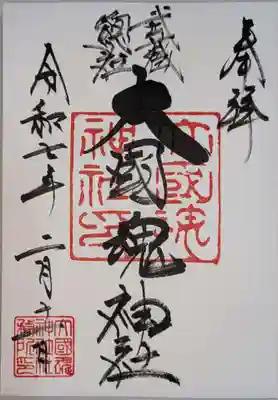 奉拝
武蔵
総社
大國魂神社
大國魂
神社印
令和七年 二月十一日